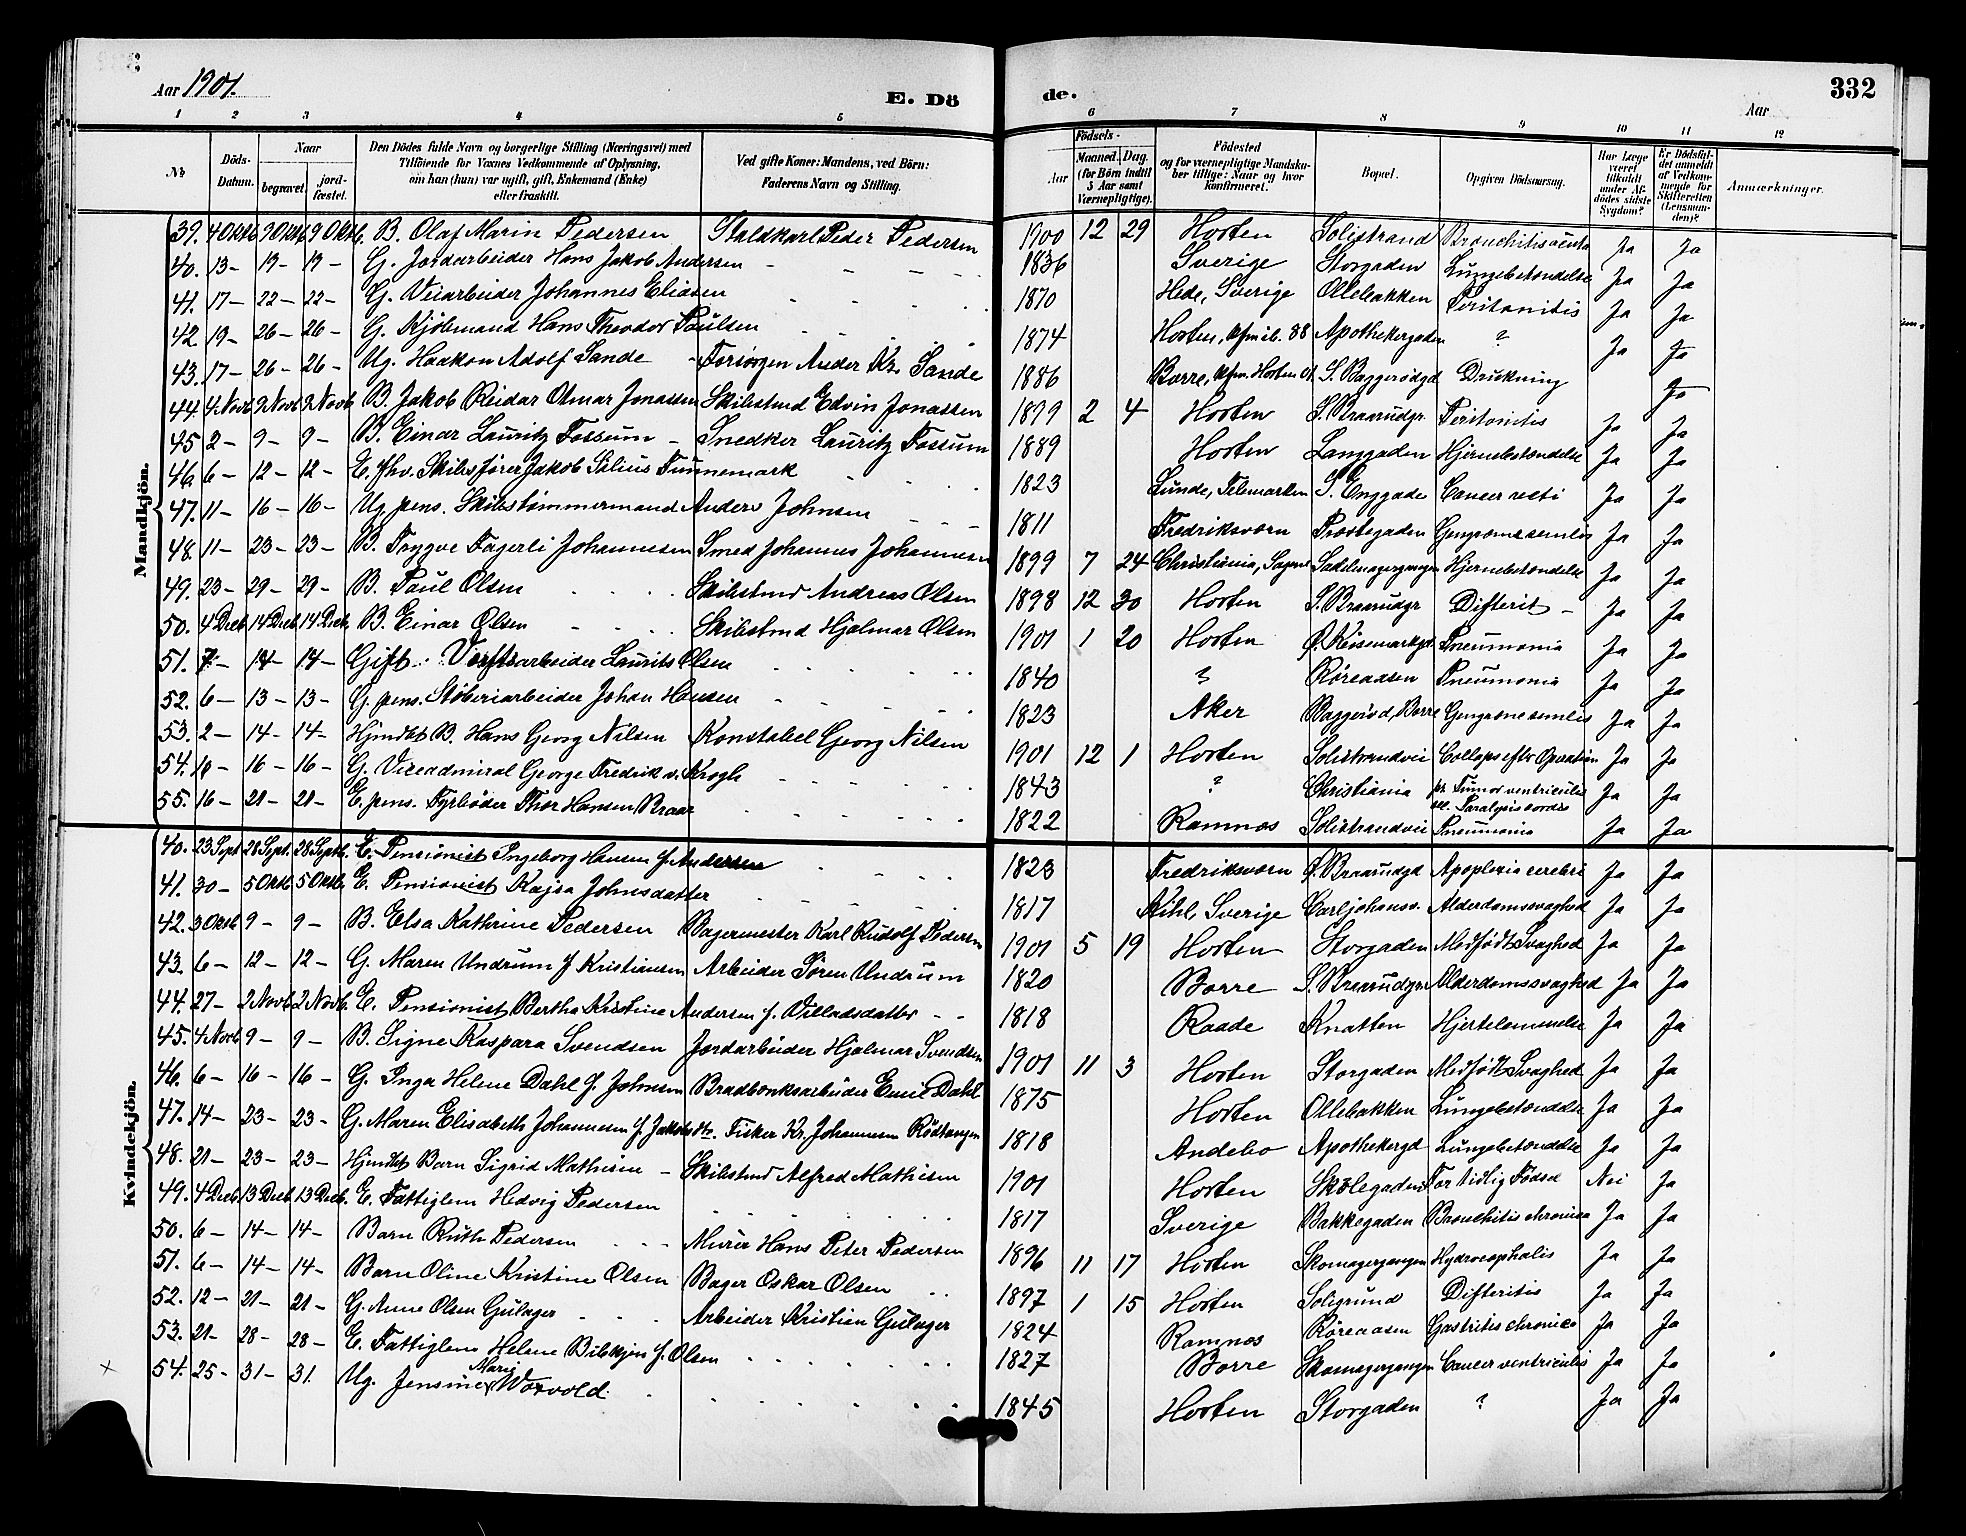 Aar 1901. E. Dö de. Aar 332
1 2 3 4 5 6 7 8 9 10 11 12
No Döds-Datum. Naar begravet. jord-fæstet. Den Dödes fulde Navn og borgerlige Stilling (Næringsvei) med Tilföiende for Voxnes Vedkommende af Oplysning, om han (hun) var ugift, gift, Enkemand (Enke) eller fraskilt. Ved gifte Koner: Mandens, ved Börn: Faderens Navn og Stilling. Födsels- Aar Maaned. Dag. (for Börn indtil 5 Aar samt Værnepligtige). Födested og for værnepligtige Mandskaber tillige: Naar og hvor konfirmeret. Bopæl. Opgiven Dödsaarsag. Har Læge været tilkaldt under Afdödes sidste Sygdom? Er Dödsfaldet anmeldt af Vedkommende for Skifteretten (Lensmanden)? Anmærkninger.
Mandkjön.
39. 4 Oktb. 9 Oktb. 9 Oktb. B. Olaf Marin Pedersen Staldkarl Peder Pedersen 1900 12 29 Horten Solistrand Bronchitis acuta Ja Ja
40. 13 – 19 – 19 – G. Jordarbeider Hans Jakob Andersen 1836 Sverige Storgaden Lungebetændelse Ja Ja
41. 17 – 22 – 22 – G. Veiarbeider Johannes Eliasen 1870 Hede, Sverige Ollebakken Peritonitis Ja Ja
42. 19 – 26 – 26 – G. Kjölmand Hans Theodor Paulsen 1874 Horten, 88 Apothekergaden ? Ja Ja
43. 17 – 26 – 26 – Ug. Haakon Adolf Sande Anders Kr. Sande 1886 Borre, Horten S. Baggerödgd Drukning Ja
44. 4 Novb. 9 Novb. 9 Novb. B. Jakob Reidar Otmar Jonassen Skibstmd Edvin Jonassen 1899 2 4 Horten S. Braarudgr. Peritonitis Ja Ja
45 2 – 9 – 9 – B. Einar Lauritz Fossum – Snedker Lauritz Fossum 1889 Horten Langgaden Hjernebetændelse Ja Ja
46. 6 – 12 – 12 – E. fhv. Skibsfører Jakob Silius Tunnemark 1823 Lunde, Telemarken S. Enggade Cancer recti Ja Ja
47. 11 – 16 – 16 – Ug. pens. Skibstømmermand Anders Johnsen 1811 Fredriksværn Præstegaden Gangræna senilis Ja Ja
48. 11 – 23 – 23 – B. Trygve Fagerli Johannesen Smed Johannes Johannesen 1899 7 24 Christiania, Sagene Sadelmagergangen Hjernebetændelse Ja Ja
49. 23 – 29 – 29 – B. Paul Olsen Skibstmd Andreas Olsen 1898 12 30 Horten S. Braarudgr Difterit – Ja Ja
50. 4 Decb. 14 Decb. 14 Decb. B. Einar Olsen Skibstmd Hjalmar Olsen 1901 1 20 Horten Ø. Keisemarkgd. Pneumonia Ja Ja
51. 7 – 14 – 14 – Gift. Verftsarbeider Laurits Olsen 1840 ? Røreaasen Pneumonia Ja Ja
52. 6 – 13 – 13 – G. pens. Støberiarbeider Johan Hansen 1823 Aker Baggerød, Borre Gangræne senilis Ja Ja
53. 2 – 14 – 14 – Hjmdbt B. Hans Georg Nilsen Konstabel Georg Nilsen 1901 12 1 Horten Solistrandvei Collaps efter Operation Ja Ja
54. 10 – 16 – 16 – G. Viceadmiral George Fredrik v. Krogh 1843 ? Christiania Tumor ventriculis Paralysis cordis Ja Ja
55. 16 – 21 – 21 – E. pens. Fyrbøder Thor Hansen Braar 1822 Ramnæs Solistrandvei Pneumonia Ja Ja
Kvindekjön.
40. 23 Sept. 28 Sept. 28 Septb. E. Pensionist Ingeborg Hansen f. Andersen 1823 Fredriksværn Ø. Braarudgd Apoplexia cerebri Ja Ja
41. 30 – 5 Oktb. 5 Oktb. E. Pensionist Kajsa Johnsdatter 1817 Sverige Carljohansv. Alderdomssvaghed Ja Ja
42. 3 Oktb. 9 – 9 – B. Elsa Kathrine Pedersen Bagermester Karl Rudolf Pedersen 1901 5 19 Horten Storgaden Medfødt Svaghed Ja Ja
43. 6 – 12 – 12 – G. Maren Undrum f. Kristiansen Arbeider Sören Undrum 1820 Borre S. Braarudgr. Alderdomssvaghed Ja Ja
44. 27 – 2 Novb. 2 Novb. E. Pensionist Bertha Kristine Andersen f. Villadsdatter 1818 Raade Knatten Hjertelammelse Ja Ja
45. 4 Novb. 9 – 9 – B. Signe Kaspara Svendsen Jordarbeider Hjalmar Svendsen 1901 11 3 Horten Storgaden Medfødt Svaghed Ja Ja
46. 6 – 16 – 16 – G. Inga Helene Dahl f. Johnsen Bradbænksarbeider Emil Dahl 1875 Horten Ollebakken Lungebetændelse Ja Ja
47. 14 – 23 – 23 – G. Maren Elisabeth Johannesen f. Jakobsdtr. Fisker Kr. Johannesen Rödtangen 1818 Andebo Apothekergd Lungebetændelse Ja Ja
48. 21 – 23 – 23 – Hjmdbt Barn Sigrid Mathisen – Skibstmd Alfred Mathisen 1901 Horten Skolegaden For tidlig Fødsel Nei Ja
49. 4 Decb. 13 Decb. 13 Decb. E. Fattiglem Hedvig Pedersen 1817 Sverige Bakkegaden Bronchitis chronica Ja Ja
50. 6 – 14 – 14 – Barn Ruth Pedersen Murer Hans Peter Pedersen 1896 11 17 Horten Skomagergangen Hydrocephalis Ja Ja
51. 6 – 14 – 14 – Barn Oline Kristine Olsen Bager Oskar Olsen 1897 1 15 Horten Soligrund Difteritis Ja Ja
52. 12 – 21 – 21 – G. Anne Olsen Gulager Arbeider Kristien Gulager 1824 Ramnæs Røreaasen Gastritis chronica Ja Ja
53. 21 – 28 – 28 – E. Fattiglem Helene Bilskjøn f. Olsen 1827 Borre Skomagergangen Cancer ventriculis Ja Ja
× 54. 25 – 31 – 31. Ug. Jensine Marie Worvold. 1845 Horten Storgaden ? Ja Ja